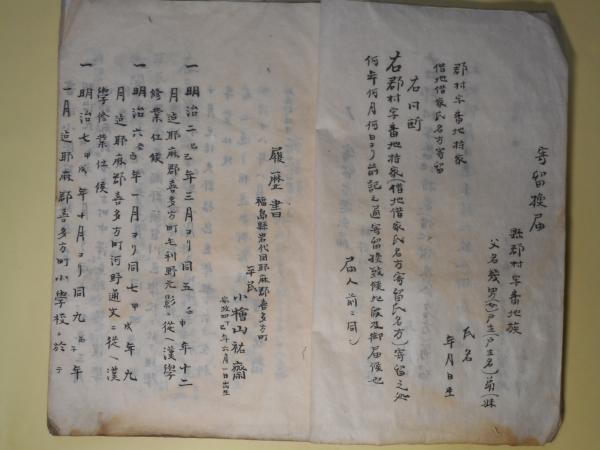 寄留換届
縣郡村字番地族
父名幾男(女)戸主(戸主名)弟(妹
氏名
年月日生
郡村字番地持家
借地借家氏名方寄留
右同断
右郡村字番地持家(借地借家氏名方寄留氏名方)寄留之処
何年何月何日ヨリ前記之通寄留換致候地段及御届候也
届人前ニ同シ
履歴書
福島縣岩代国耶麻郡喜多方町
平民
小檜山祐齋
安政四巳年六月一日出生
一明治二己巳年三月ヨリ同五壬申年十二
月迄耶麻郡喜多方町毛利野元影ニ従ヘ漢學
修業仕候
一明治六癸酉年一月ヨリ同七甲戌年九
月迄耶麻郡喜多方町河野通文ニ従ヘ漢
學修業仕候
一明治七甲戌年十月ヨリ同九丙子年
一月迄耶麻郡喜多方町小學校ニ於テ